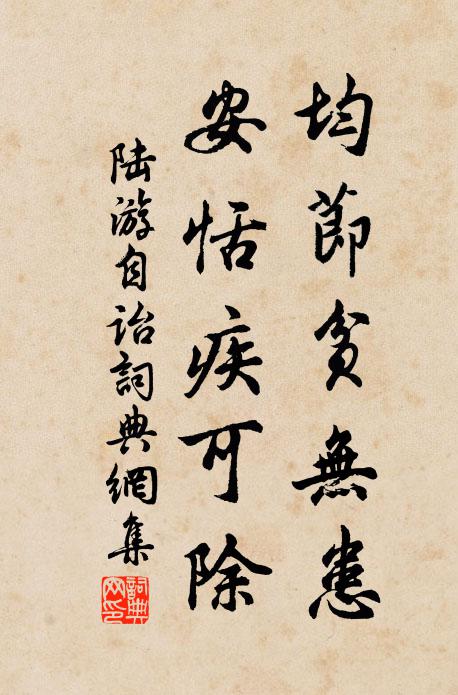 均節貧無患
安恬疾可除
陸游自詒詞典網集
詞典網印